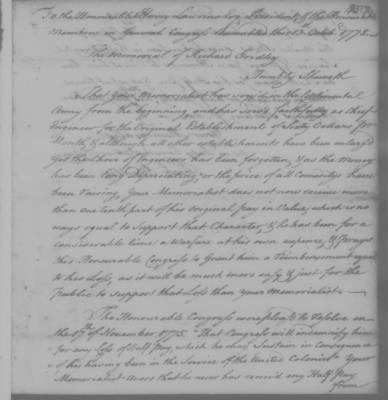 To the Honourable Henry Laurens Esq. President, & the Honourable
Members in General Congress
The Memorial of Richard Gridley
Humbly Sheweth
That your Memorialist has served in the Continental
Army from the beginning and has served faithfully as Chief
Engineer for the Original Establishment of Sixty Dollars per
Month, & although all other establishments have been enlarged
yet the Above of Engineers has been forgotten, & as the money
has been long depreciating, or the price of all Comoditys have
been raising, Your Memorialist does not now receive more
than one tenth part of his original pay in Value, which is no
ways equal to Support that Character, & he has been for a
considerable time a warfare at his own expence, & prays
this Honourable Congress to Grant him a Reimbursement equal
to his Loss, as it will be much more easy & just for the
Publick to support that Loss than your memorialist.
The Honourable Congress were pleased to resolve on
the 17th of November 1775. That Congress will indemnify him
for any Loss of half Pay, which he may Sustain in Consequence
of his having been in the Service of the United Colonies. Your
Memorialist avers that he never has receiv'd any Half Pay
from